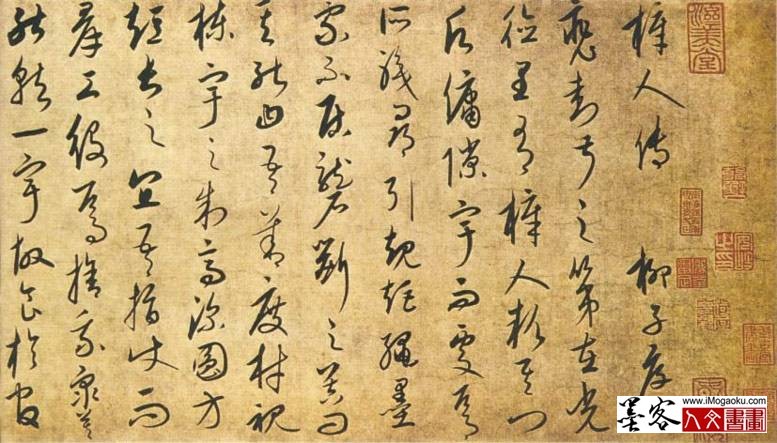 梓人傳 柳子厚
裴封叔之第在光
德里有梓人款其門
傭隙宇而處焉
所職尋引規矩繩墨
家不居礱斲之器問
其能曰吾善度材視
棟宇之制高深圓方
短長之宜吾指使而
群工役焉捨我眾莫
能就一宇故食於官
www.iMogaoku.com
墨客
人文書畫